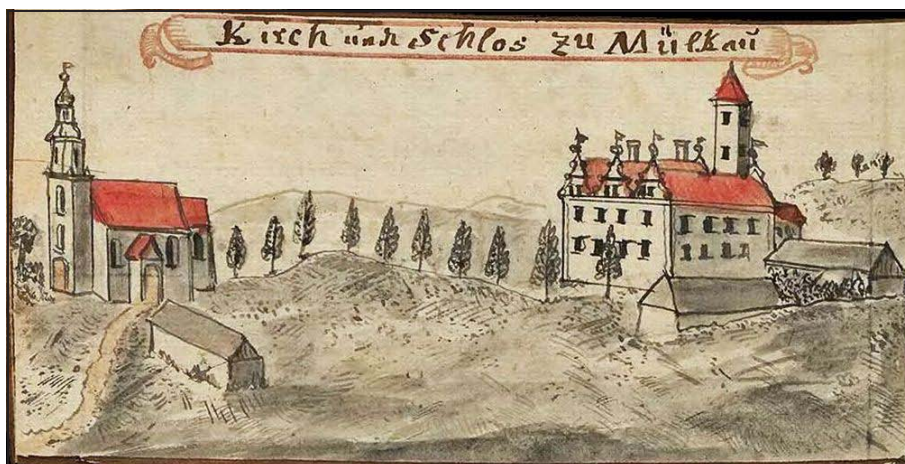 Kirch und Schlos zu Mülkau